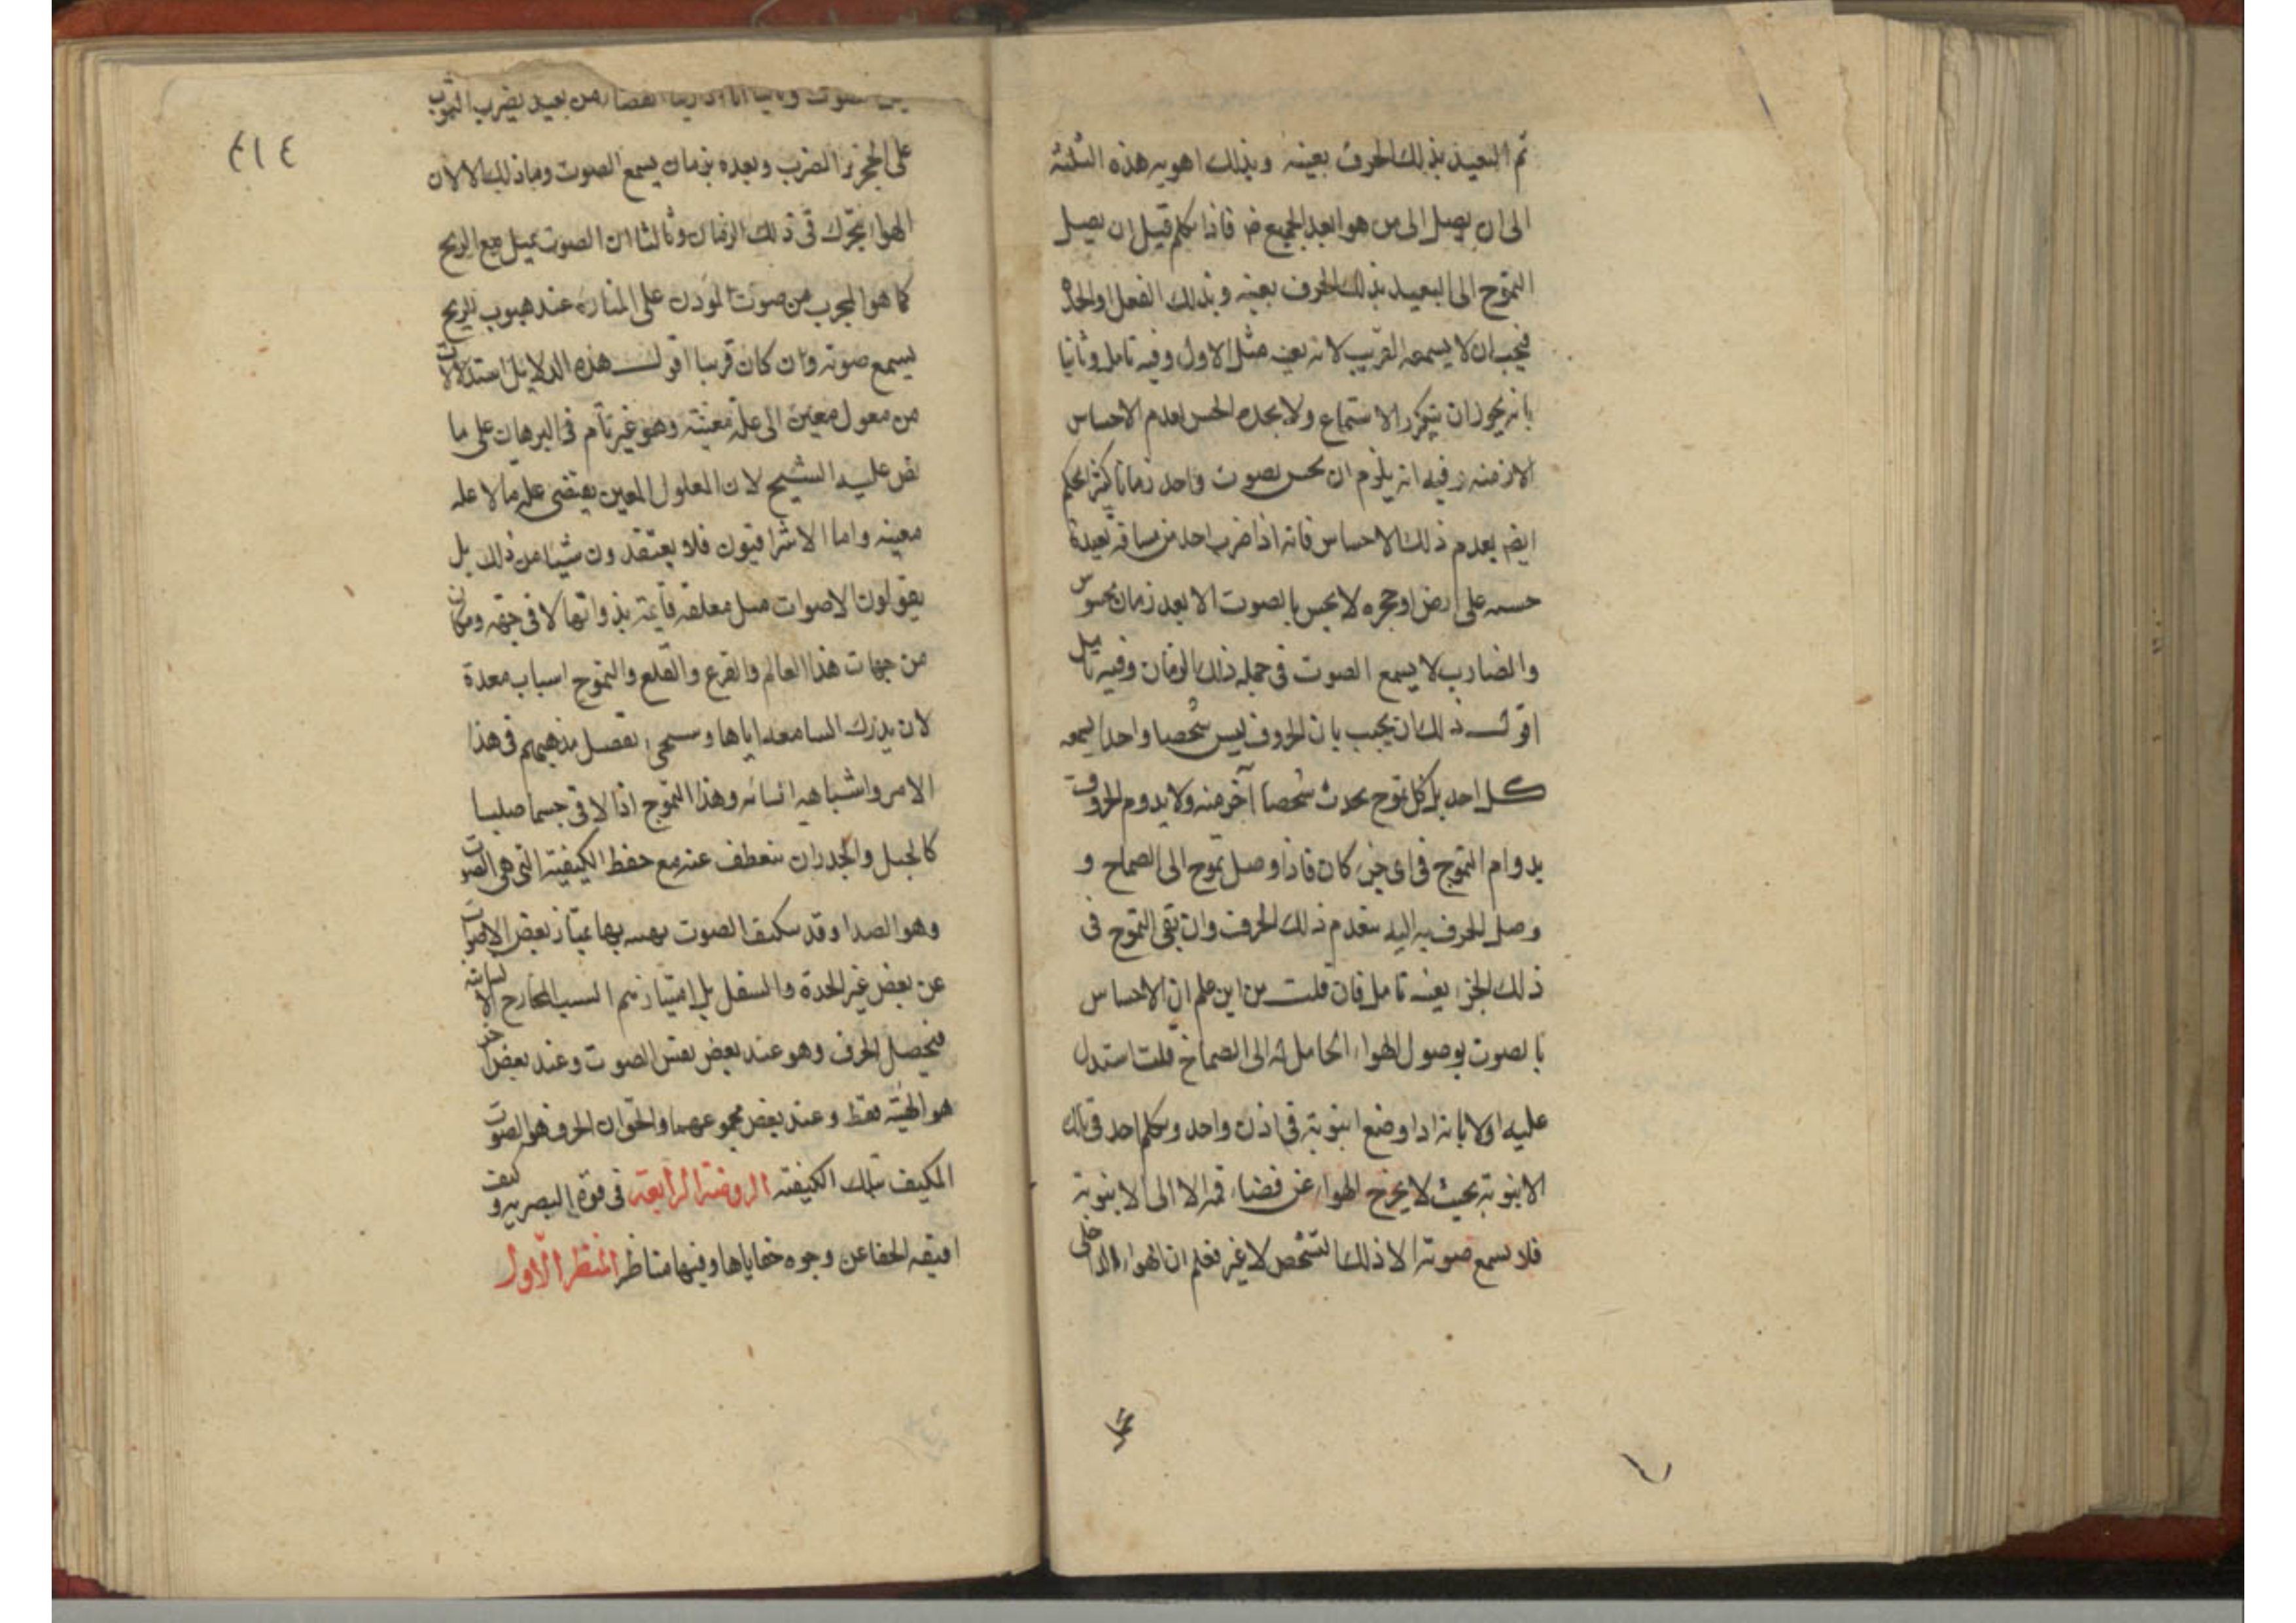 ثم البعيد بذلك الحرف بعينه وبذلك اهويه هذه الثلثه
الى ان يصل الى من هو ابعد الجميع فاذا تكلم قبل ان يصل
التموج الى البعيد بذلك الحرف بعينه وبذلك الفعل
فيجب ان لا يسمعه القريب لانه بعينه مثل الاول وفيه تامل وثانيا
بانه يجوز ان يتكرر الاستماع ولا يجده الحس لعدم الاحساس
الازمنه وفيه انه يلزم ان يحس بصوت واحد زمانا كثيرا
ايضا بعدم ذلك الاحساس فانه اذا ضرب احد من مسافة بعيدة
على ارض او حجره لا يحس بالصوت الا بعد زمان محسوس
والضارب لا يسمع الصوت فى جمله ذلك الزمان وفيه تامل
اقول ذلك ان يجيب بان الحروف ليس شخصا واحدا يسمعه
كل احد بل كل تموج يحدث شخصا آخر منه ولا يدوم الحروف
بدوام التموج فى اى جزء كان فاذا وصل تموج الى الصماخ و
وصل الحرف به اليه ينعدم ذلك الحرف وان بقى التموج فى
ذلك الجزء بعينه تامل فان قلت من اين علم ان الاحساس
بالصوت بوصول الهواء الحامل له الى الصماخ قلت استدل
عليه اولا بانه اذا وضع انبوبة فى اذن واحد وتكلم احد فى تلك
الانبوبة بحيث لا يخرج الهواء عن فضاء فمه الا الى الانبوبة
فلا يسمع صوته الا ذلك الشخص لا غير فعلم ان الهواء الداخل
٤١٤
من بعيد يضرب الثوب
على الحجر نرا الضرب وبعده بزمان يسمع الصوت وما ذلك الا لان
الهواء يتحرك فى ذلك الزمان وثالثا ان الصوت يميل مع الريح
كما هو المجرب من صوت المؤذن على المناره عند هبوب الريح
يسمع صوته وان كان قريبا اقول هذه الدلايل استدلالات
من معول معين الى علة معينة وهو غير تام فى البرهان على ما
نص عليه الشيخ لان المعلول المعين يقتضى علة ما لا علة
معينه واما الاشراقيون فلا يعتقدون شيئا من ذلك بل
يقولون الاصوات مثل معلقه قائمة بذواتها لا فى جهة ومكان
من جهات هذا العالم والقرع والقلع والتموج اسباب معدة
لان يدرك السامعه اياها وسيجى تفصيل مذهبهم فى هذا
الامر واشباهه وهذا التموج اذا لاقى جسما صلبا
كالجبل والجدران ينعطف عنه مع حفظ الكيفية التى هى الصوت
وهو الصدا وقد يتكيف الصوت بهيئه بها يمتاز بعض الاصوات
عن بعض غير الحدة والثقل بل امتياز بسبب المخارج
فيحصل الحرف وهو عند بعض نفس الصوت وعند بعض آخر
هو الهيئة فقط وعند بعض مجموعهما والحق ان الحرف هو الصوت
المكيف بتلك الكيفية الروضة الرابعة فى قوة البصريه و
الخفا عن وجوه خفاياها وفيها مناظر المنظر الاول